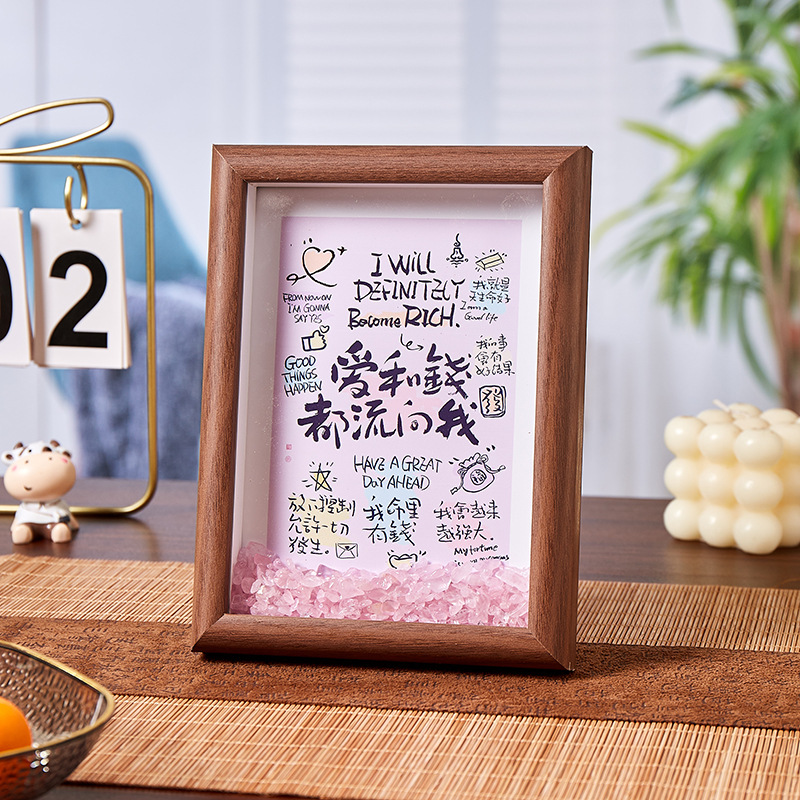 02
I WILL
DEFINITELY
Become RICH.
FROM NOW ON
I'M GONNA
SAY YES
我就是
天生命好
I am a
Good life
GOOD
THINGS
HAPPEN
我的事
會有
好結果
發
爱和錢
都流向我
HAVE A GREAT
DAY AHEAD
放下控制
允許一切
發生。
我命里
有錢
我會越来
越強大.
My fortune